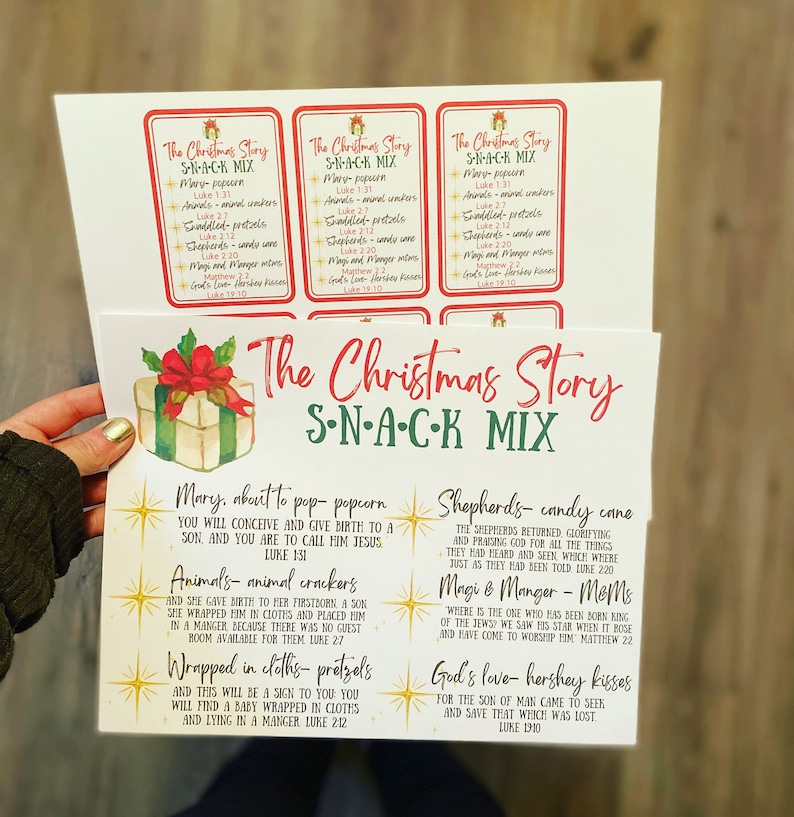 The Christmas Story
S•N•A•C•K MIX
Mary- popcorn
Luke 1:31
Animals - animal crackers
Luke 2:7
Swaddled- pretzels
Luke 2:12
Shepherds - candy cane
Luke 2:20
Magi and Manger m&ms
Matthew 2:2
God's Love- Hershey Kisses
Luke 19:10
The Christmas Story
S•N•A•C•K MIX
Mary- popcorn
Luke 1:31
Animals - animal crackers
Luke 2:7
Swaddled- pretzels
Luke 2:12
Shepherds - candy cane
Luke 2:20
Magi and Manger m&ms
Matthew 2:2
God's Love- Hershey Kisses
Luke 19:10
The Christmas Story
S•N•A•C•K MIX
Mary- popcorn
Luke 1:31
Animals - animal crackers
Luke 2:7
Swaddled- pretzels
Luke 2:12
Shepherds - candy cane
Luke 2:20
Magi and Manger m&ms
Matthew 2:2
God's Love- Hershey Kisses
Luke 19:10
The Christmas Story
S•N•A•C•K MIX
Mary, about to pop- popcorn
YOU WILL CONCEIVE AND GIVE BIRTH TO A
SON, AND YOU ARE TO CALL HIM JESUS.
LUKE 1:31
Animals- animal crackers
AND SHE GAVE BIRTH TO HER FIRSTBORN, A SON.
SHE WRAPPED HIM IN CLOTHS AND PLACED HIM
IN A MANGER, BECAUSE THERE WAS NO GUEST
ROOM AVAILABLE FOR THEM. LUKE 2:7
Wrapped in cloths- pretzels
AND THIS WILL BE A SIGN TO YOU: YOU
WILL FIND A BABY WRAPPED IN CLOTHS
AND LYING IN A MANGER. LUKE 2:12
Shepherds- candy cane
THE SHEPHERDS RETURNED, GLORIFYING
AND PRAISING GOD FOR ALL THE THINGS
THEY HAD HEARD AND SEEN, WHICH WHERE
JUST AS THEY HAD BEEN TOLD. LUKE 2:20
Magi & Manger - M&Ms
"WHERE IS THE ONE WHO HAS BEEN BORN KING
OF THE JEWS? WE SAW HIS STAR WHEN IT ROSE
AND HAVE COME TO WORSHIP HIM." MATTHEW 2:2
God's love- hershey kisses
FOR THE SON OF MAN CAME TO SEEK
AND SAVE THAT WHICH WAS LOST.
LUKE 19:10